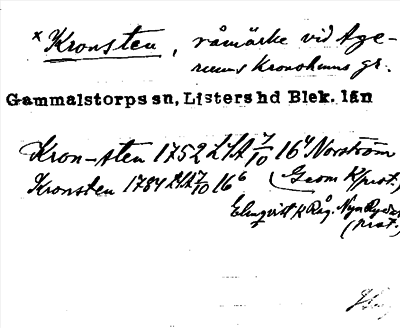 x Kronsten, råmärke vid Age-
rums Kronohums gr.
Gammalstorps sn, Listers hd Blek. län
Kron-sten 1752 LSA 7/10 16⁴ Norström
Kronsten 1784 LSA 7/10 16⁶ (Geom K/prot.)
Elmqvist K Råg. Nya
prot.)